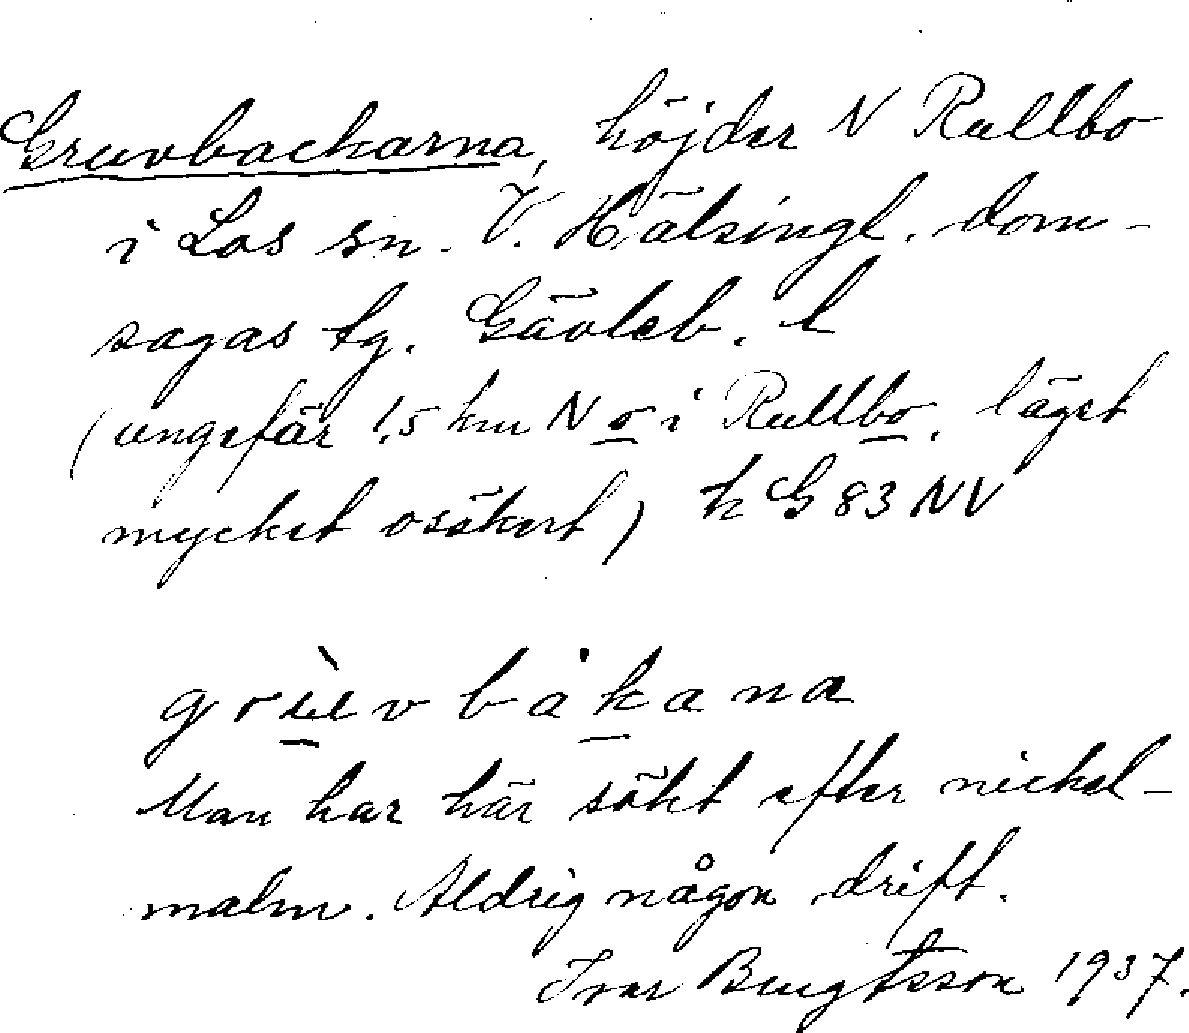 Gruvbackarna, höjder N Rullbo
i Los sn. V. Hälsingl. dom-
sagas tg. Gävleb. l
(ungefär 1,5 km N o i Rullbo. läget
mycket osäkert) k G 83 NV
grùvbåkana
Man har här sökt efter nickel-
malm. Aldrig någon drift.
Ivar Bengtsson 1937.